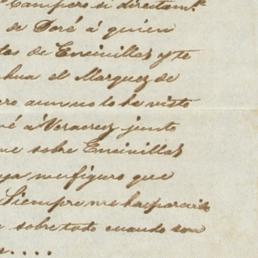 Campero si directam.te
de Doré á quien
tas de Encinillas y te
hua el Marquez de
ero aun no lo he visto
é á Veracruz junto
me sobre Encinillas
ga me figuro que
Siempre me ha parecido
sobre todo cuando son
....